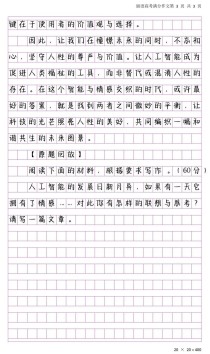 键在于使用者的价值观与选择。
因此，让我们在憧憬未来的同时，不忘初
心，坚守人性的尊严与价值。让人工智能成为
促进人类福祉的工具，而非替代或混淆人性的
存在。在这个智能与情感交织的时代，或许最
好的答案，就是找到科技与人性的和谐平衡，让
科技的光芒照亮人性的美好，共同编织一幅和
谐共生的未来图景。
【原题回放】
阅读下面的材料，根据要求写作。（60分）
人工智能的发展日新月异，如果有一天它
拥有了情感……对此你有怎样的联想与思考？
请写一篇文章。
20 × 20 = 400